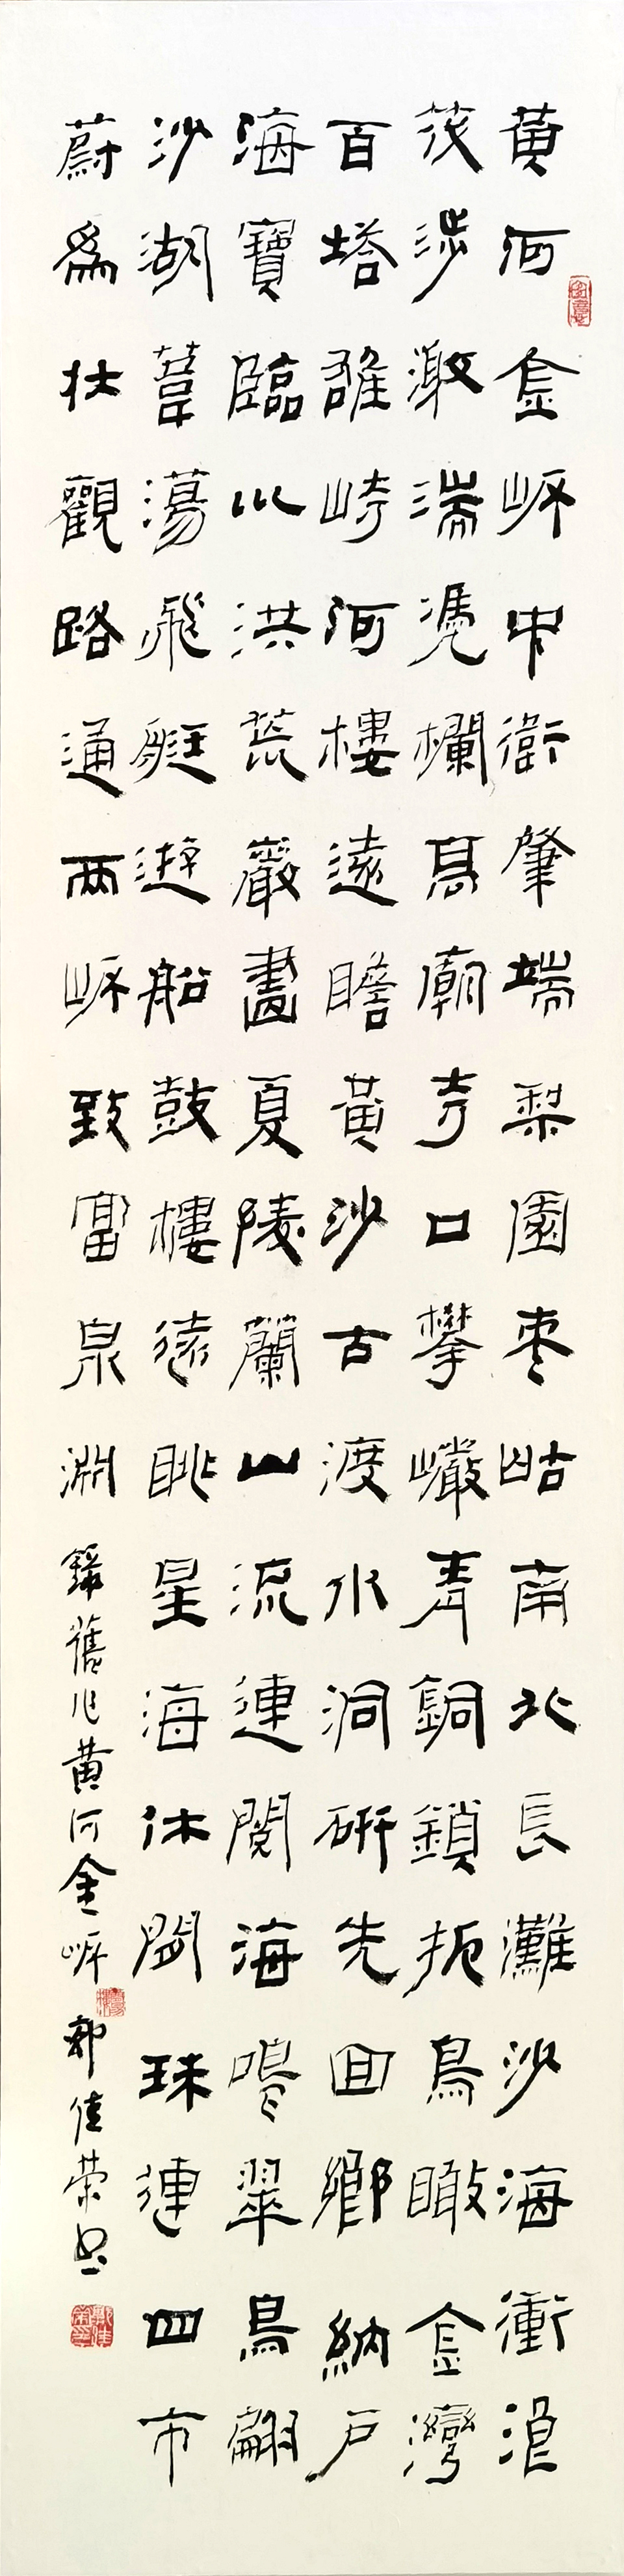 黄河金岸中衛肇端梨園枣岵南北長灘沙海衝浪
筏涉激湍憑欄高廟寺口攀巖青銅鎖扼鳥瞰金灣
百塔雄崎河樓遠瞻黄沙古渡水洞研先回鄉納户
海寶臨川洪荒嚴畫夏陵蘭山流連閱海鳴翠鳥翩
沙湖葦蕩飛艇遊船鼓樓遠眺星海休閑珠連四市
蔚為壯觀路通两岸致富泉淵
錄舊作黄河金岸 郭佳荣书